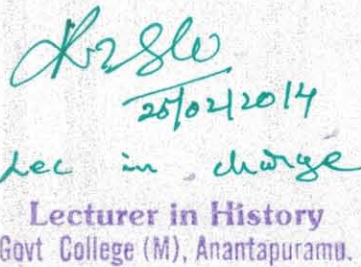 25/02/2014
Lec in charge
Lecturer in History
Govt College (M), Anantapuramu.